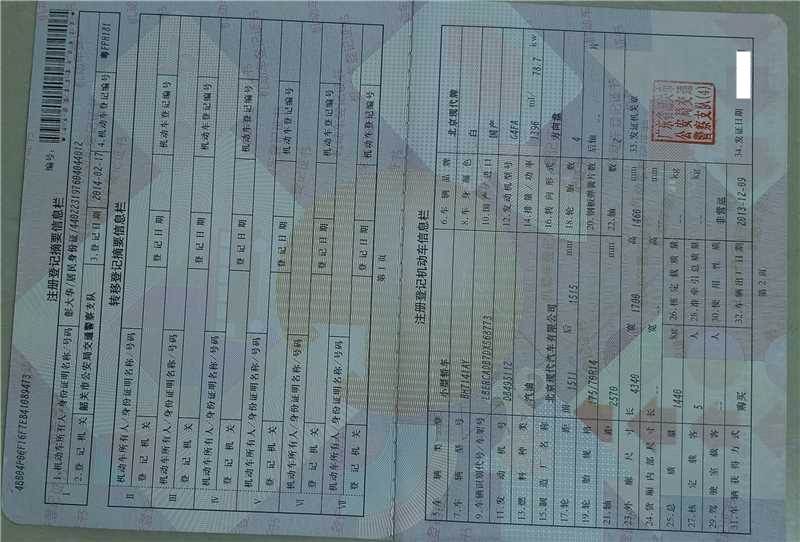 编号:
4BB04F06F16F7EB41089473
注册登记摘要信息栏
1.机动车所有人/身份证明名称/号码 彭大华/居民身份证/440223197604044012
2.登记机关 韶关市公安局交通警察支队 3.登记日期 2014-02-17 4.机动车登记编号 粤FPH181
转移登记摘要信息栏
II 机动车所有人/身份证明名称/号码
登记机关 登记日期 机动车登记编号
III 机动车所有人/身份证明名称/号码
登记机关 登记日期 机动车登记编号
IV 机动车所有人/身份证明名称/号码
登记机关 登记日期 机动车登记编号
V 机动车所有人/身份证明名称/号码
登记机关 登记日期 机动车登记编号
VI 机动车所有人/身份证明名称/号码
登记机关 登记日期 机动车登记编号
VII 机动车所有人/身份证明名称/号码
登记机关 登记日期 机动车登记编号
第1页
注册登记机动车信息栏
5.车辆类型 小型轿车 6.车辆品牌 北京现代牌
7.车辆型号 BH7141AY 8.车身颜色 白
9.车辆识别代号/车架号 10.国产/进口 国产
11.发动机号 DB492112 12.发动机型号 G4FA
13.燃料种类 汽油 14.排量/功率 1396 ml/ 78.7 kw
15.制造厂名称 北京现代汽车有限公司 16.转向形式 方向盘
17.轮距 前 1511 后 1515 mm 18.轮胎数 4
19.轮胎规格 175/70R14 20.钢板弹簧片数 后轴 片
21.轴距 2570 mm 22.轴数 2
23.外廓尺寸 长 4340 宽 1700 高 1460 mm 33.发证机关章
24.货厢内部尺寸 长 宽 高 mm
公安局交通
警察支队(4)
25.总质量 1440 kg 26.核定载质量 kg
27.核定载客 5 人 28.准牵引总质量 kg
29.驾驶室载客 人 30.使用性质 非营运
31.车辆获得方式 购买 32.车辆出厂日期 2013-12-09 34.发证日期
第2页